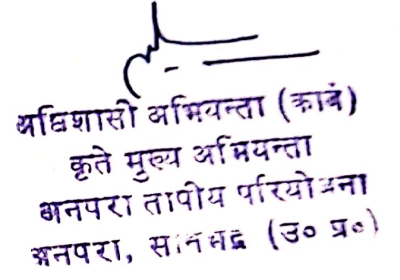 अधिशासी अभियन्ता (काबं)
कृते मुख्य अभियन्ता
अनपरा तापीय परियोजना
अनपरा, सोनभद्र (उ० प्र०)